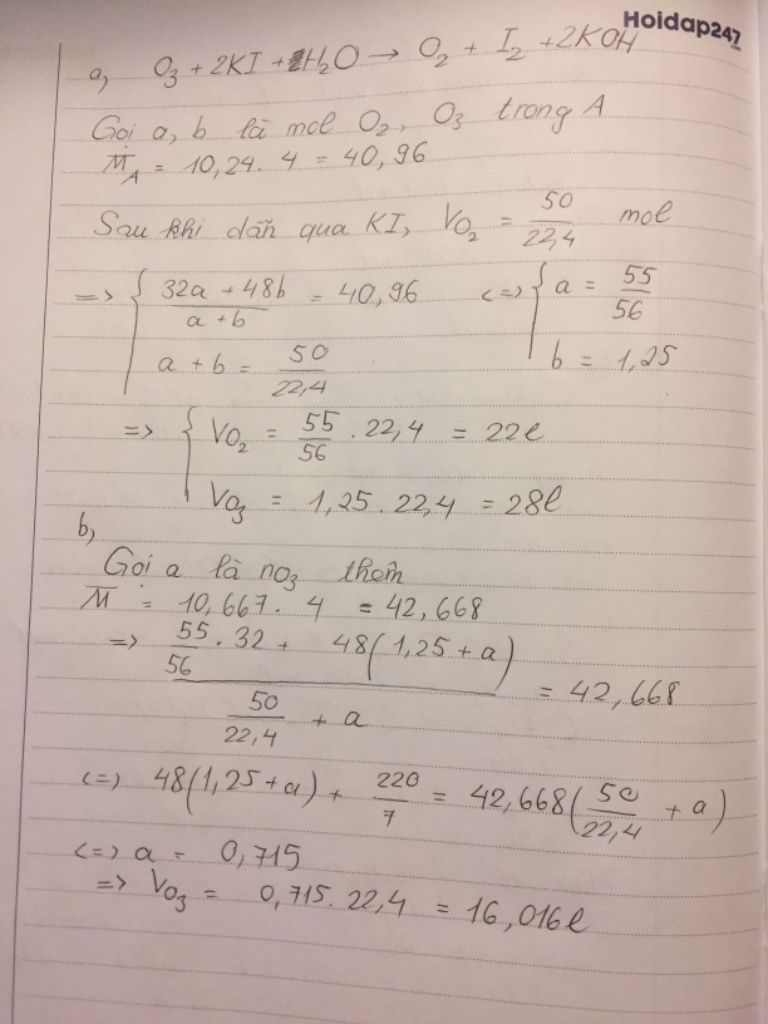 Hoidap247
a, O₃ + 2KI + H₂O → O₂ + I₂ + 2KOH
Gọi a, b là mol O₂, O₃ trong A
M̅_A = 10,24. 4 = 40,96
Sau khi dẫn qua KI, VO₂ = 50/22,4 mol
=> { (32a + 48b)/(a + b) = 40,96 <=> { a = 55/56
a + b = 50/22,4 b = 1,25
=> { VO₂ = 55/56 . 22,4 = 22l
VO₃ = 1,25. 22,4 = 28l
b,
Gọi a là nO₃ thêm
M̅ = 10,667. 4 = 42,668
=> (55/56 . 32 + 48(1,25 + a))/(50/22,4 + a) = 42,668
<=> 48(1,25 + a) + 220/7 = 42,668(50/22,4 + a)
<=> a = 0,715
=> VO₃ = 0,715. 22,4 = 16,016l